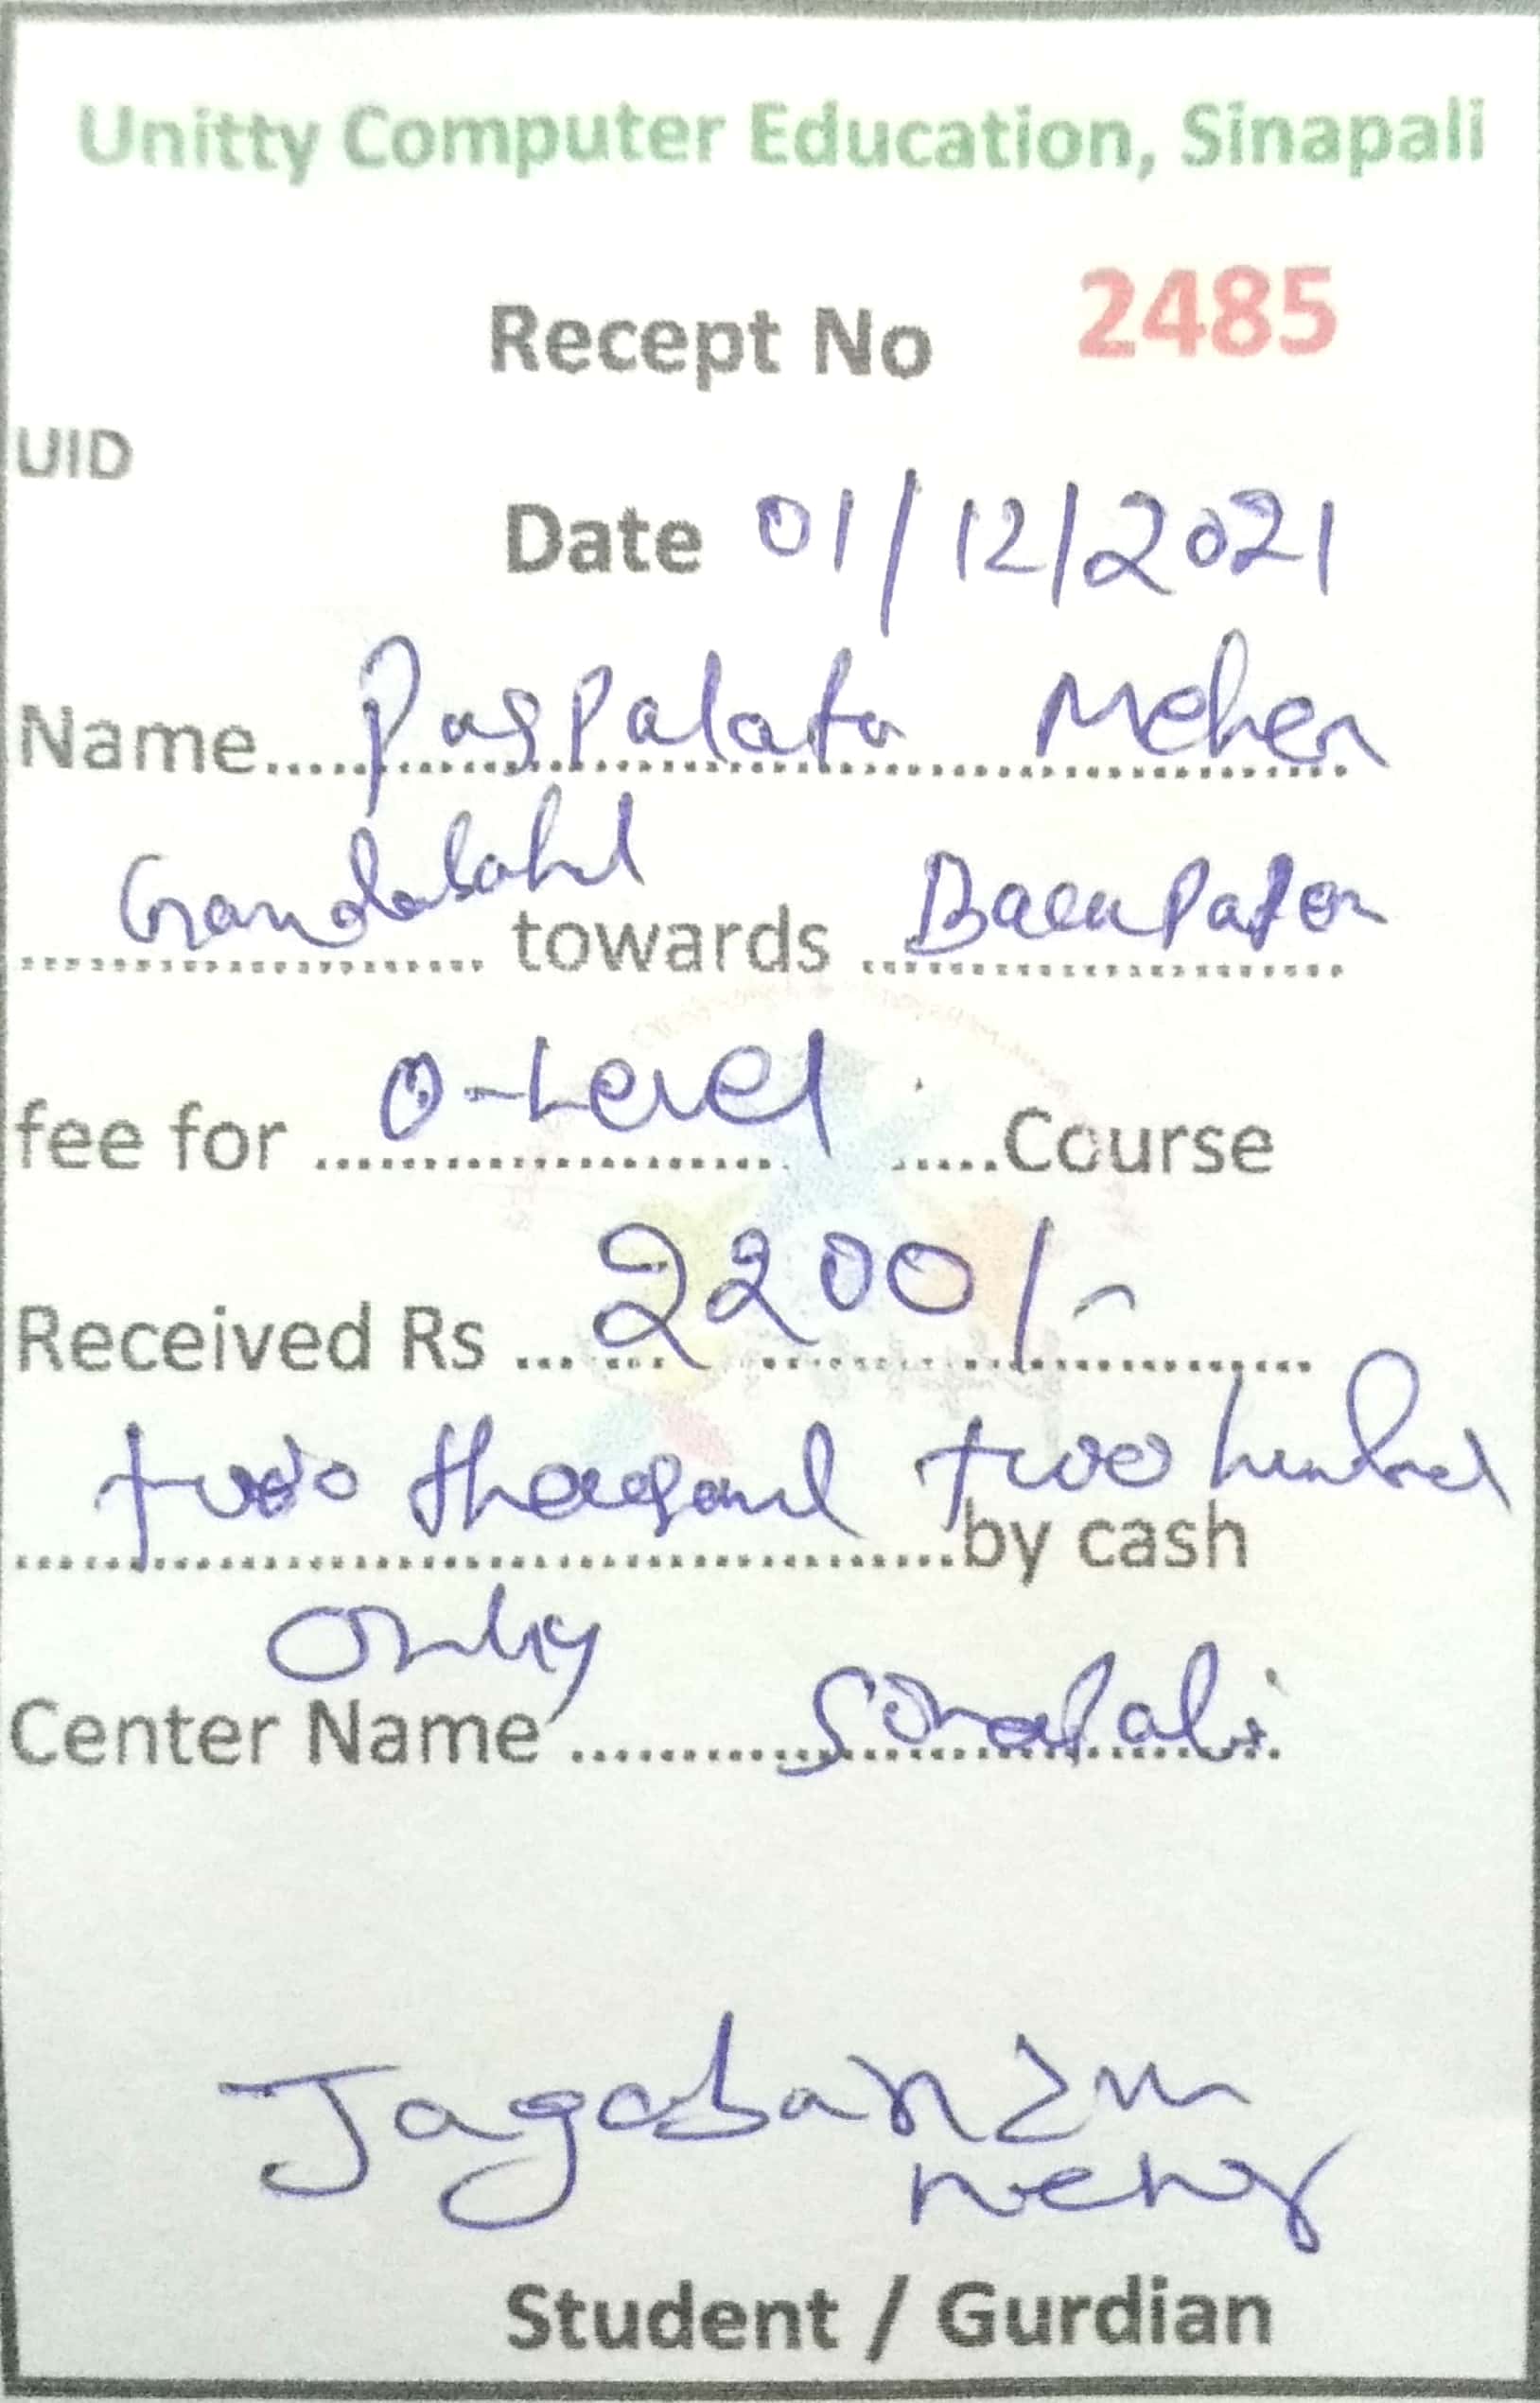 Unitty Computer Education, Sinapali
Recept No 2485
UID
Date 01/12/2021
Name Puspalata Meher
Gandabahl towards
fee for O-Level Course
Received Rs 2200/-
two thousand two hundred
by cash
only
Center Name Sinapali
Jagabandhu
Meher
Student / Gurdian